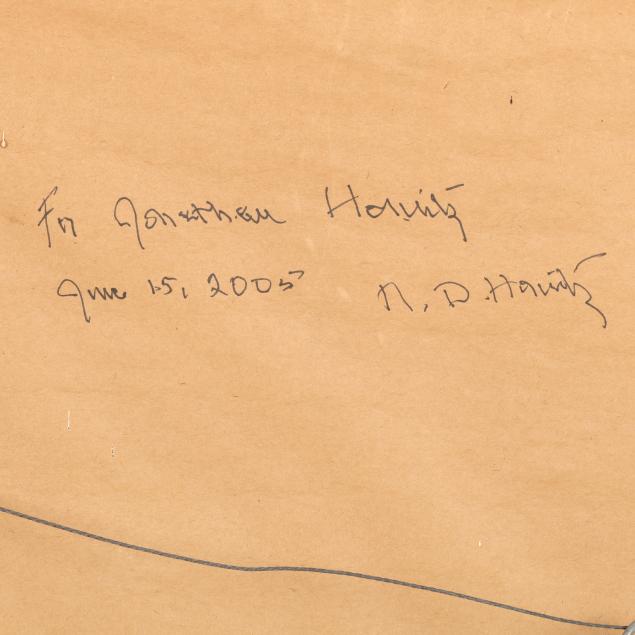 For Jonathan Horwitz
June 15, 2005
N. D. Horwitz